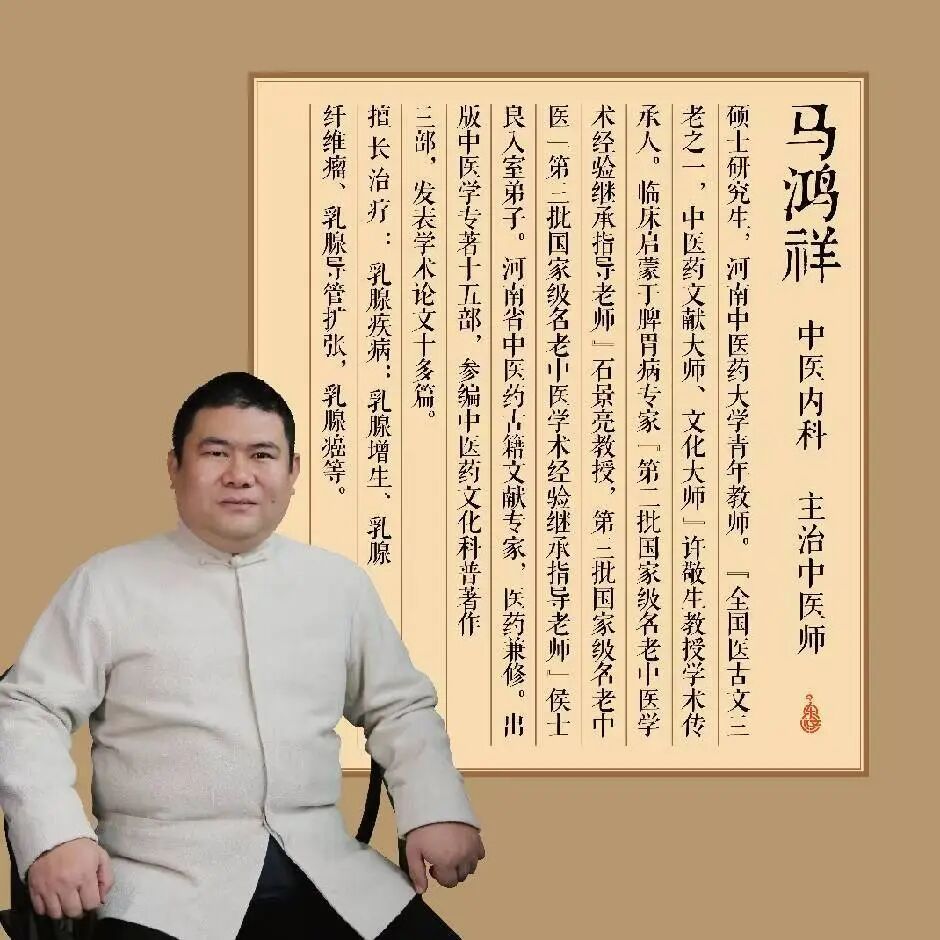 马鸿祥 中医内科 主治中医师
硕士研究生，河南中医药大学青年教师。『全国医古文三
老之一，中医药文献大师、文化大师』许敬生教授学术传
承人。临床启蒙于脾胃病专家『第二批国家级名老中医学
术经验继承指导老师』石景亮教授，第三批国家级名老中
医』第三批国家级名老中医学术经验继承指导老师』侯士
良入室弟子。河南省中医药古籍文献专家，医药兼修。出
版中医学专著十五部，参编中医药文化科普著作
三部，发表学术论文十多篇。
擅长治疗：乳腺疾病：乳腺增生、乳腺
纤维瘤、乳腺导管扩张，乳腺癌等。